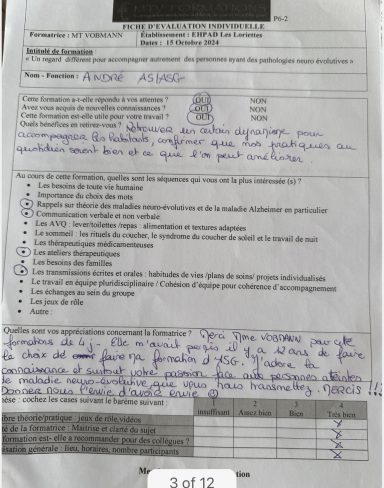 MTV FORMATIONS
P6-2
FICHE D'EVALUATION INDIVIDUELLE
Formatrice : MT VOBMANN Établissement : EHPAD Les Loriettes
Dates : 15 Octobre 2024
Intitulé de formation :
« Un regard différent pour accompagner autrement des personnes ayant des pathologies neuro évolutives »
Nom - Fonction : ANDRÉ AS/ASG
Cette formation a-t-elle répondu à vos attentes ? OUI NON
Avez vous acquis de nouvelles connaissances ? OUI NON
Cette formation est-elle utile pour votre travail ? OUI NON
Quels bénéfices en retirez-vous ? Retrouver un certain dynamisme pour
accompagner les habitants, confirmer que nos pratiques au
quotidien soient bien et ce que l'on peut améliorer.
Au cours de cette formation, quelles sont les séquences qui vous ont la plus intéressée (s) ?
• Les besoins de toute vie humaine
• Importance du choix des mots
• Rappels sur théorie des maladies neuro-évolutives et de la maladie Alzheimer en particulier
• Communication verbale et non verbale
• Les AVQ : lever/toilettes /repas : alimentation et textures adaptées
• Le sommeil : les rituels du coucher, le syndrome du coucher de soleil et le travail de nuit
• Les thérapeutiques médicamenteuses
• Les ateliers thérapeutiques
• Les besoins des familles
• Les transmissions écrites et orales : habitudes de vies /plans de soins/ projets individualisés
• Le travail en équipe pluridisciplinaire / Cohésion d'équipe pour cohérence d'accompagnement
• Les échanges au sein du groupe
• Les jeux de rôle
• Autre :
Quelles sont vos appréciations concernant la formatrice ? Merci Mme VOBMANN pour cette
formations de 4 j - Elle m'avait permis il y a 12 ans de faire
le choix de faire ma formation d'ASG. J'adore ta
connaissance et surtout votre passion face aux personnes atteintes
de maladie neuro-évolutive que vous nous transmettez. MERCIS !!!
Donner nous l'envie d'avoir envie
cochez les cases suivant le barème suivant :
1 2 3 4
insuffisant Assez bien Bien Très bien
théorie/pratique : jeux de rôle, vidéos X
té de la formatrice : Maitrise et clarté du sujet X
formation est- elle a recommander pour des collègues ? X
isation générale : lieu, horaires, nombre participants X
3 of 12